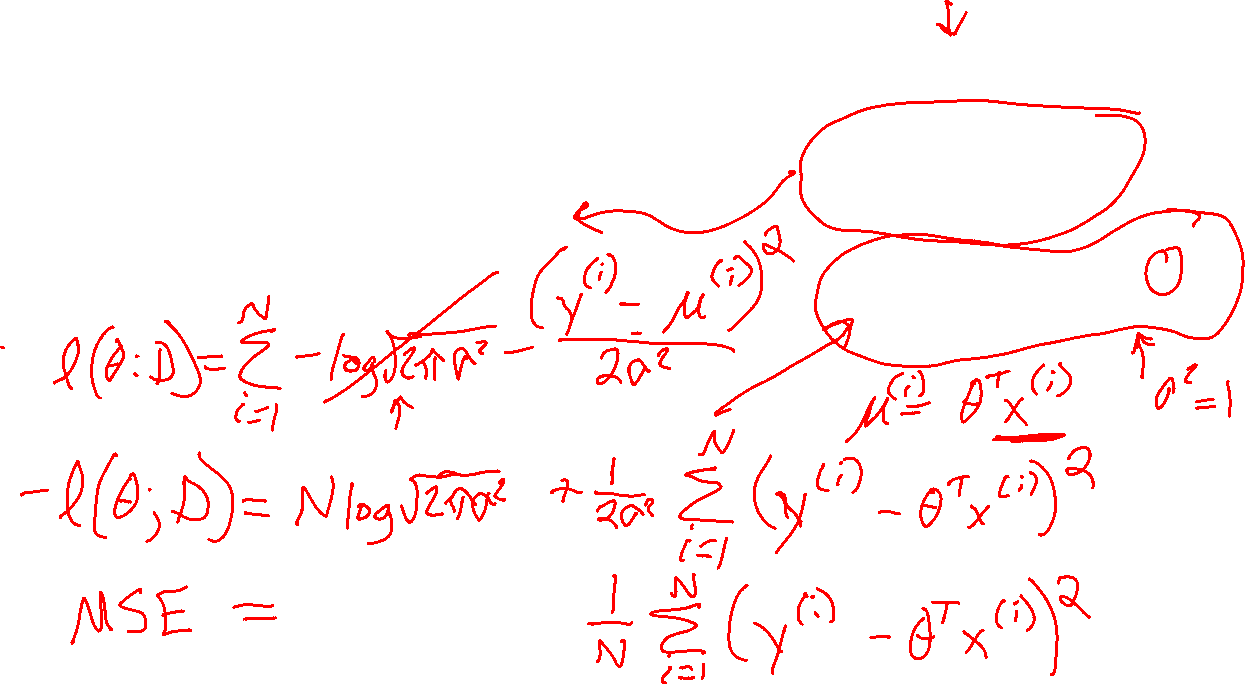 ℓ(θ:D) = ∑_{i=1}^{N} -log√(2πσ²) - (y^{(i)} - μ^{(i)})² / 2σ²
μ^{(i)} = θᵀx^{(i)} σ² = 1
-ℓ(θ;D) = N log√(2πσ²) + 1/(2σ²) ∑_{i=1}^{N} (y^{(i)} - θᵀx^{(i)})²
MSE = 1/N ∑_{i=1}^{N} (y^{(i)} - θᵀx^{(i)})²